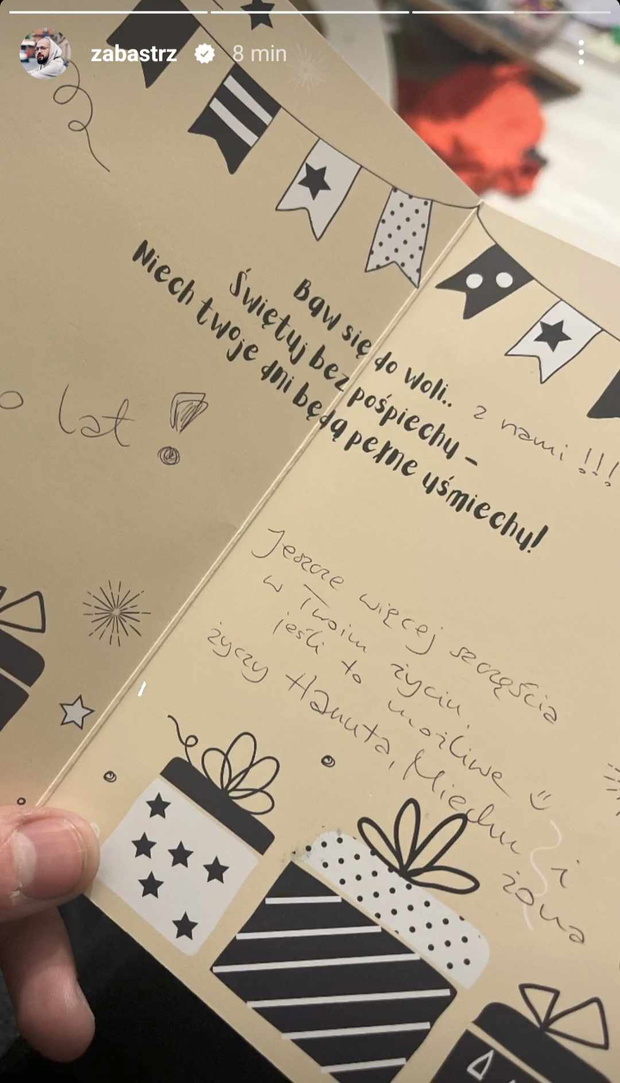 zabastrz 8 min
o lat!
Baw się do woli.. z nami!!!
Świętuj bez pośpiechu –
Niech twoje dni będą pełne uśmiechu!
Jeszcze więcej szczęścia
w Twoim życiu,
jeśli to możliwe
życzy Hanuta, Miechu i
żona